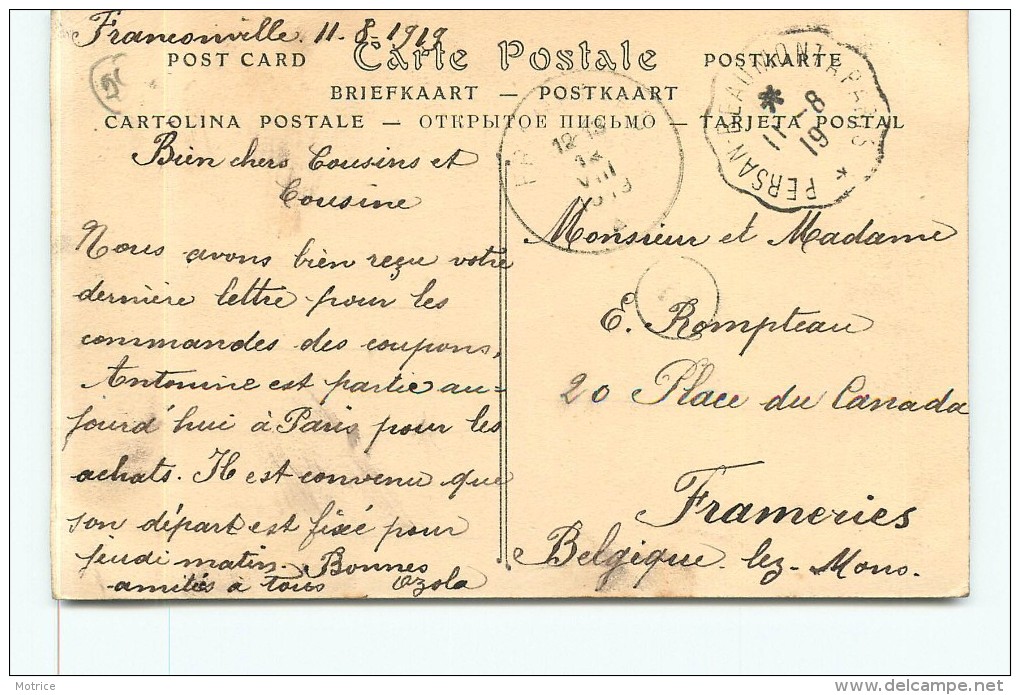 Franconville 11-8-1919
POST CARD Carte Postale POSTKARTE
BRIEFKAART — POSTKAART
CARTOLINA POSTALE — ОТКРЫТОЕ ПИСЬМО — TARJETA POSTAL
PERSAN-BEAUMONT A PARIS
11-8
19
VIII
Bien chers Cousins et
Cousine
Nous avons bien reçu votre
dernière lettre pour les
commandes des coupons,
Antonine est partie au-
jourd'hui à Paris pour les
achats. Il est convenu que
son départ est fixé pour
jeudi matin. Bonnes
amitiés à tous Ozola
Monsieur et Madame
E. Rompteau
20 Place du Canada
Frameries
Belgique lez-Mons.
Motrice
www.delcampe.net